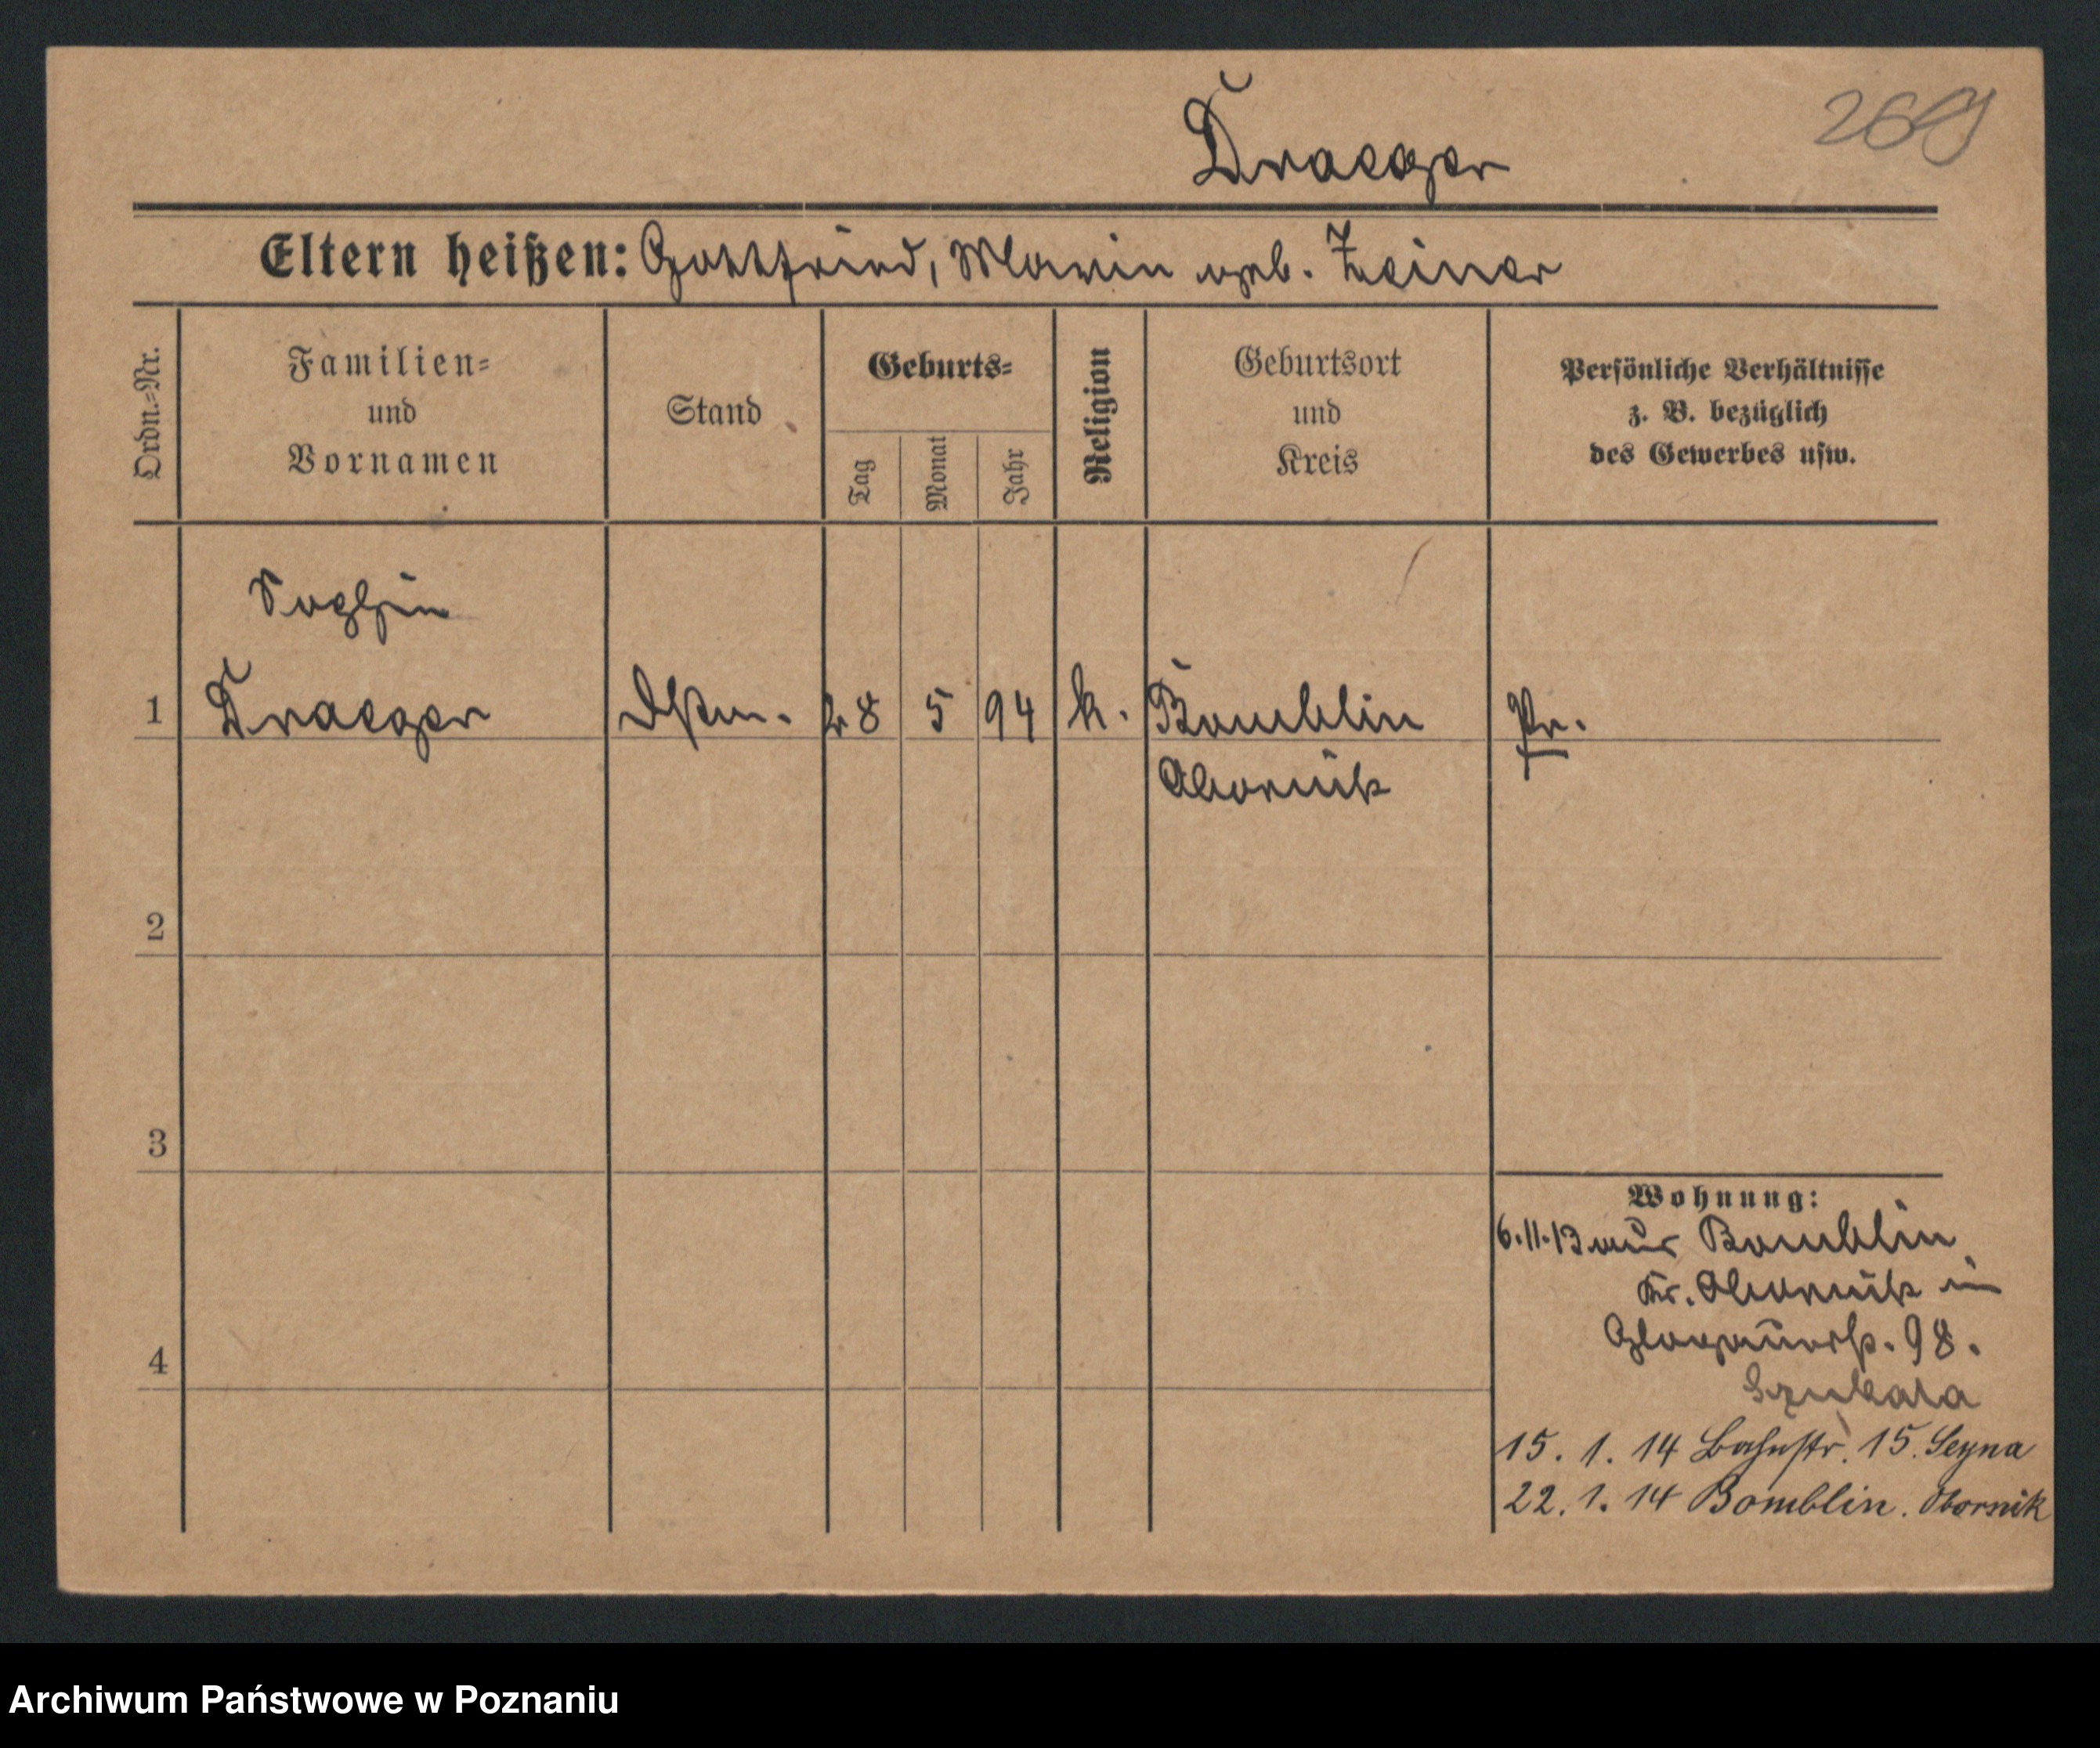 Draeger
Eltern heißen: Gottfried, Maria geb. Zeiner
Ordn.-Nr.
Familien-
und
Vornamen
Stand
Geburts-
Tag
Monat
Jahr
Religion
Geburtsort
und
Kreis
Persönliche Verhältnisse
z. B. bezüglich
des Gewerbes usw.
Sophia
1 Draeger Dstm. 28 5 94 k. Bomblin Pr.
Obornik
2
3
4
Wohnung:
6.11.13 aus Bomblin
Kr. Obornik in
Glogauerstr. 98.
Szukala
15. 1. 14 Bahnstr. 15. Seyna
22. 1. 14 Bomblin. Obornik
Archiwum Państwowe w Poznaniu